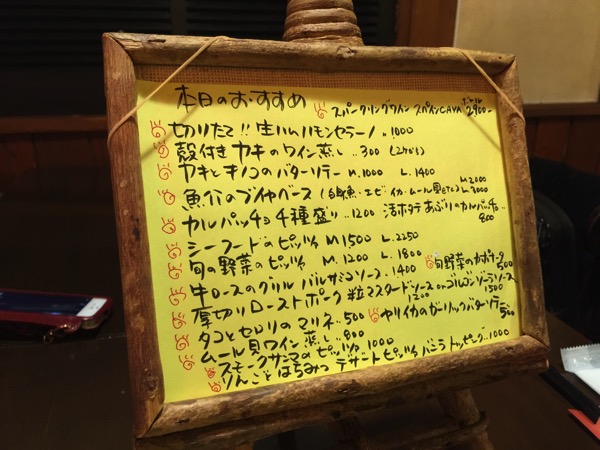 本日のおすすめ
スパークリングワイン スペインCAVA ボトル 2900-
切りたて!! 生ハム ハモンセラーノ .. 1000
殻付きカキのワイン蒸し .. 300 (2ケから)
カキとキノコのバターソテー M.1000 L.1400
魚介のブイヤベース (白身魚・エビ・イカ・ムール貝etc) M.2000 L.3000
カルパッチョ4種盛り .. 1200 活ホタテあぶりのカルパッチョ 800
シーフードのピッツァ M 1500 L.2250
旬の野菜のピッツァ M.1200 L.1800
旬野菜のカポナータ 500
牛ロースのグリル バルサミコソース・1400
厚切りローストポーク 粒マスタードソース 1200 orゴルゴンゾーラソース 1500
タコとセロリのマリネ.500
ヤリイカのガーリックバターソテー 500
ムール貝ワイン蒸し .. 800
スモークサンマのピッツァ 1000
りんごとはちみつ デザートピッツァ バニラトッピング..1000